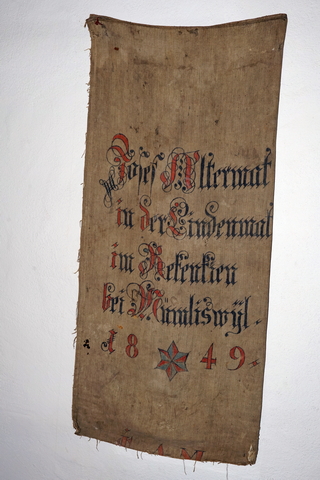 Josef Altermat
in der Lindenmat
im Rekenkien
bei Mümliswÿl.
18 49.